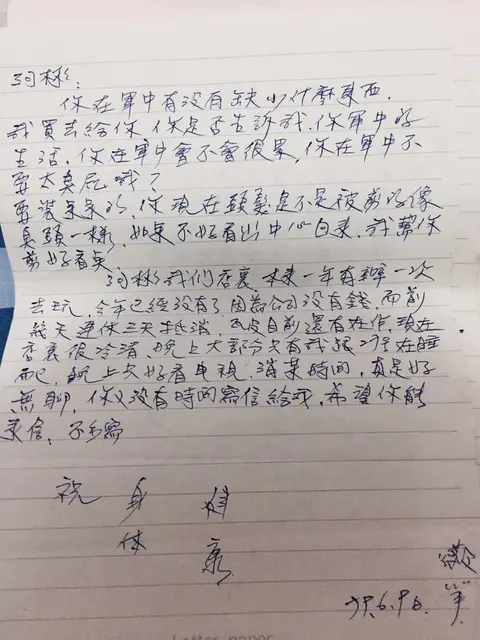 珂彬:
你在軍中有没有缺少什麼東西,
我買去給你,你是否告訴我,你軍中的
生活,你在軍中會不會很累,你在軍中不
要太臭屁哦?
要裝呆呆的,你現在頭髮是不是被剪的像
臭頭一樣,如果不好看出中心回來,我幫你
剪好看矣.
珂彬我們店裏本來一年有辦一次
去玩,今年已經没有了因為公司没有錢,而前
幾天連休三天抵消,目前還有在作,現在
店裏很冷清,晚上大部分只有我跟在睡
而已,晚上只好看电視,消某時间,真是好
無聊,你又没有時间寫信給我,希望你能
來信,不多寫
祝 身 健
体 康
筆
79.6.9日.
Letter paper